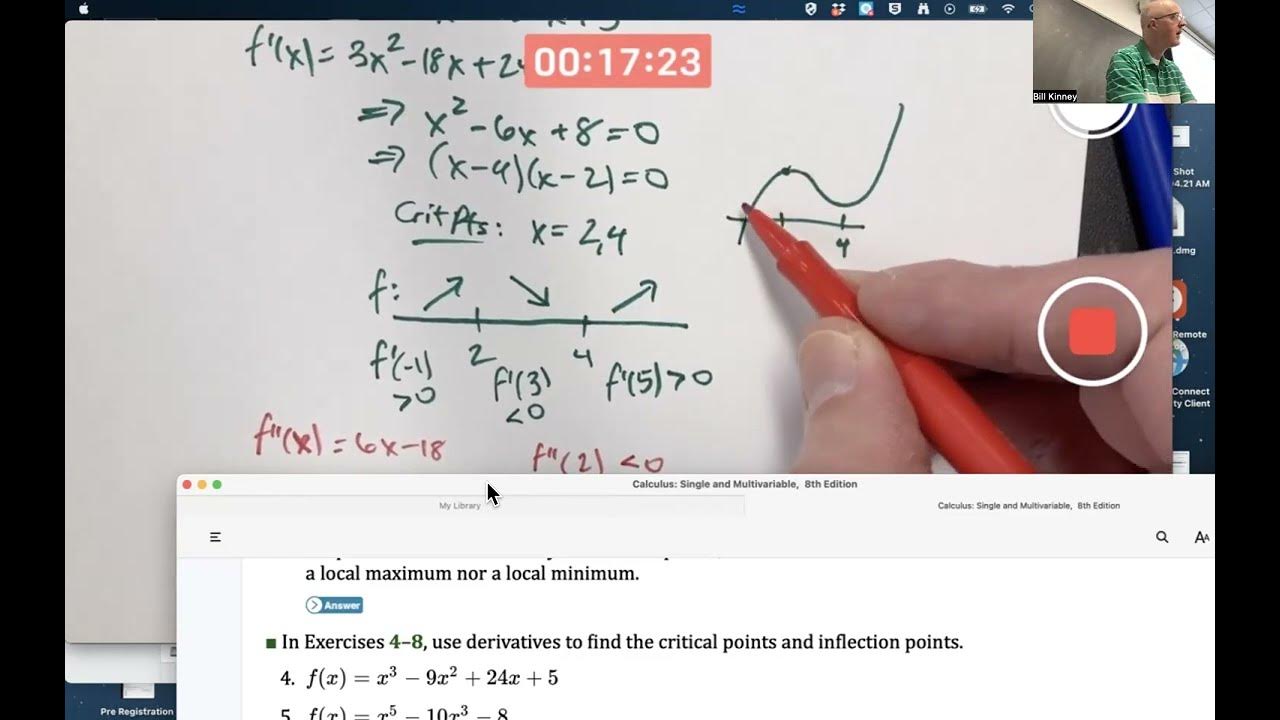 f'(x) = 3x² - 18x + 2
00:17:23
⇒ x² - 6x + 8 = 0
⇒ (x-4)(x-2) = 0
Crit Pts: x = 2,4
f: ↗ ↘ ↗
2 4
f'(-1) >0 f'(3) <0 f'(5) >0
f''(x) = 6x-18 f''(2) <0
4
Bill Kinney
Shot
4.21 AM
.dmg
Remote
Connect
ty Client
Calculus: Single and Multivariable, 8th Edition
My Library Calculus: Single and Multivariable, 8th Edition
AA
a local maximum nor a local minimum.
Answer
■ In Exercises 4–8, use derivatives to find the critical points and inflection points.
4. f(x) = x³ − 9x² + 24x + 5
5. f(x) = x⁵ − 10x³ − 8
Pre Registration